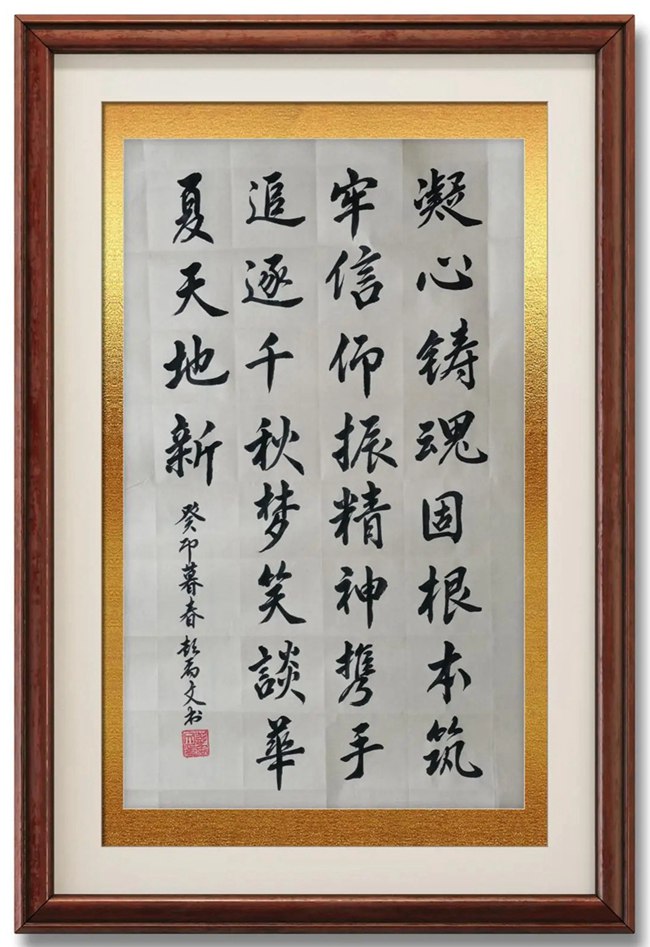 凝心铸魂固根本筑
牢信仰振精神携手
追逐千秋梦笑談華
夏天地新
癸卯暮春彭高文书